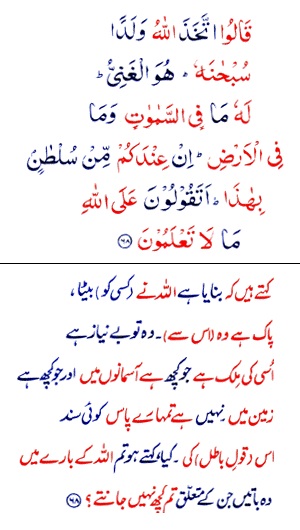 قَالُوا اتَّخَذَ اللهُ وَلَدًا
سُبْحٰنَهٗ ؕ هُوَ الْغَنِیُّ ؕ
لَهٗ مَا فِی السَّمٰوٰتِ وَمَا
فِی الْاَرْضِ ؕ اِنْ عِنْدَكُمْ مِّنْ سُلْطٰنٍۭ
بِهٰذَا ؕ اَتَقُوْلُوْنَ عَلَی اللهِ
مَا لَا تَعْلَمُوْنَ ﴿۶۸﴾
کہتے ہیں کہ بنایا ہے اللہ نے (کسی کو) بیٹا،
پاک ہے وہ (اس سے)۔ وہ تو بے نیاز ہے
اُسی کی مِلک ہے جو کچھ ہے آسمانوں میں اور جو کچھ ہے
زمین میں نہیں ہے تمہارے پاس کوئی سند
اس (قولِ باطل) کی۔ کیا کہتے ہو تم اللہ کے بارے میں
وہ باتیں جن کے متعلق تم کچھ نہیں جانتے؟ ﴿۶۸﴾